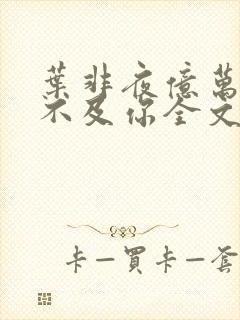 葉非夜億萬
不及你全文
卡—買卡—套